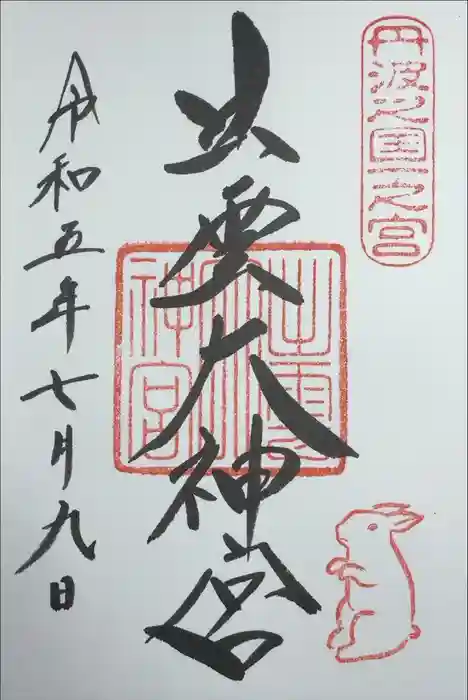 丹波之国一之宮
出雲大神宮
出雲大神宮
令和五年七月九日